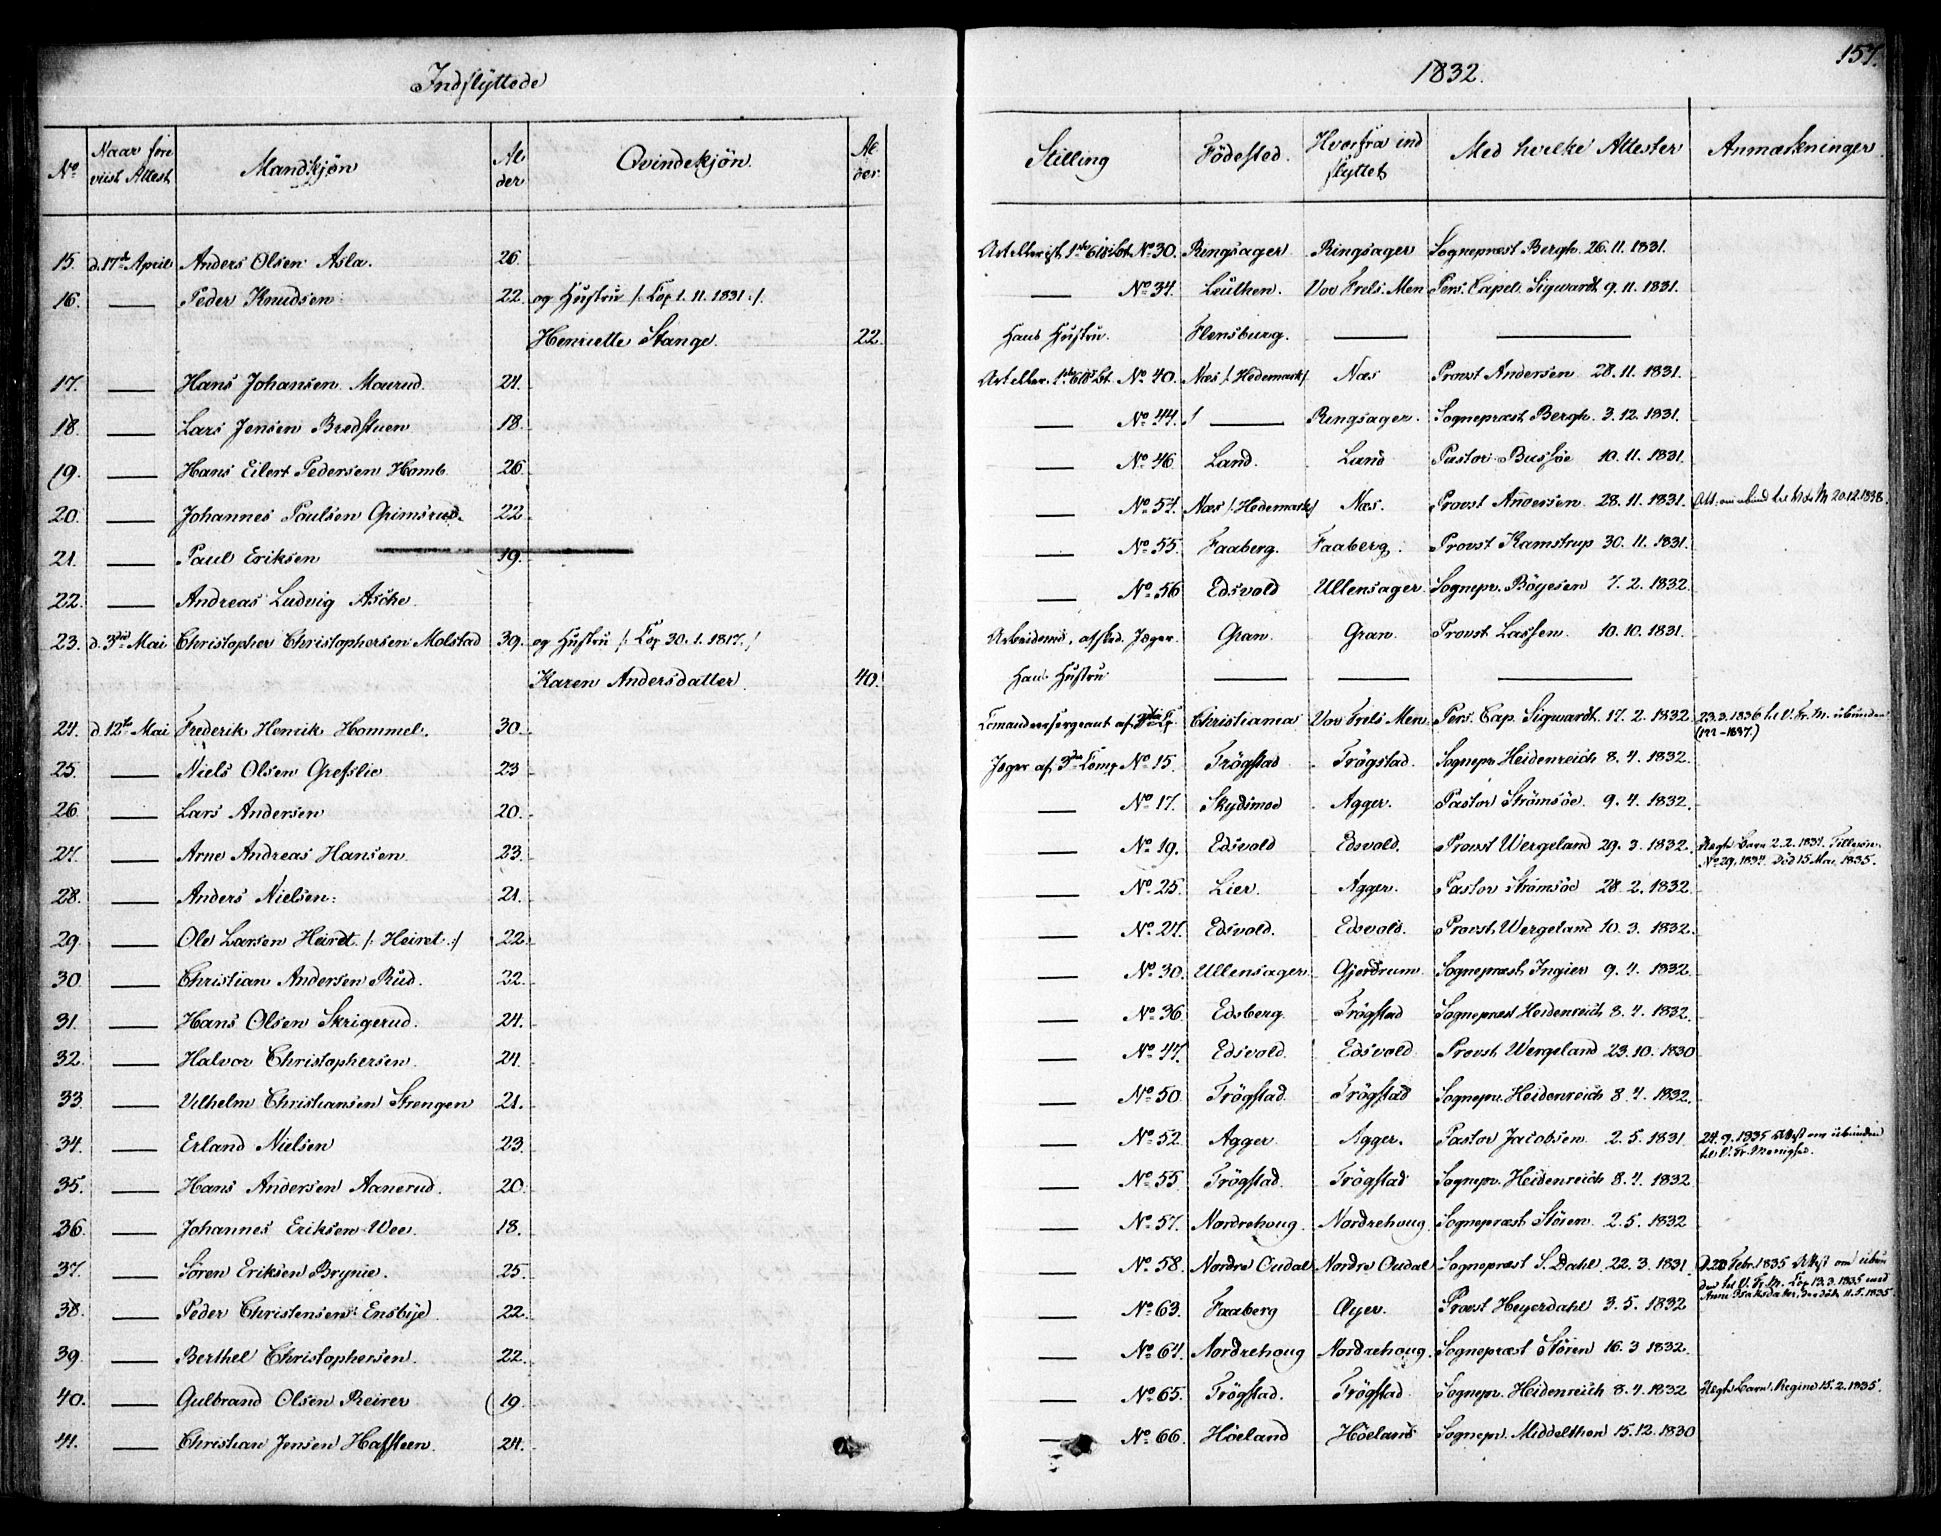 157.
Indflyttede
1832.
No Naar fore viist Attest Mandkjön Al der Qvindekjön. Al der. Stilling Födested. Hvorfra ind flyttet Med hvilke Attester Anmærkninger
15. d. 17de April Anders Olsen Asla. 26. No 30. Ringsager Ringsager Sognepræst Bergh. 26. 11. 1831.
16. — Peder Knudsen 22. og Hustru /: Cop. 1. 11. 1831 :/ — No 34. Leuthen. Vor Frels. Men Pers. Capel. Sigwardt 9. 11. 1831.
Henriette Stange. 22. Hans Hustru. Flensburg. — —
17. — Hans Johansen Maurud. 24. No 40. Næs /: Hedemark :/ Næs Provst Andersen 28. 11. 1831.
18. — Lars Jensen Bredstuen 18. — No 44. — Ringsager. Sognepræst Bergh. 3. 12. 1831.
19. — Hans Eilert Pedersen Homb 26. — No 46. Land. Land Pastor Bussöe 10. 11. 1831.
20. — Johannes Paulsen Grimsrud. 22. — No 54. Næs /: Hedemark :/ Næs. Provst Andersen 28. 11. 1831. 20.12.1838.
21. — Paul Eriksen 19. — No 55. Faaberg. Faaberg. Provst Kamstrup 30. 11. 1831.
22. — Andreas Ludvig Asche. — No 56 Edsvold Ullensager. Sognepr. Böyesen 7. 2. 1832
23. d. 3die Mai Christopher Christophersen Molstad 39. og Hustru /: Cop 30. 1. 1817. :/ Arbeidsmd. afsked. Jæger. Gran. Gran. Provst Lassen. 10. 10. 1831.
Karen Andersdatter. 40. Hans Hustru — — —
24. d 12te Mai Frederik Henrik Hommel. 30. Comandeersergeant af Christiania Vor Frels Men. Pers. Cap. Sigwardt. 17. 2. 1832. 23.3.1836 til V. Fr. M. ubunden
25. — Niels Olsen Grefslie 23 Jæger af 3die Comp No 15. Trögstad Trögstad. Sognepr. Heidenreich 8. 4. 1832.
26 — Lars Andersen 20. — No 17. Skydsmoe Agger. Pastor Strömsöe. 9. 4. 1832.
27. — Arne Andreas Hansen 23. — No 19. Edsvold Edsvold. Provst Wergeland 29. 3. 1832. Uægte Barn 2. 2. 1834. No 29, 1834. Död 15 Mai. 1835.
28. — Anders Nielsen. 21. — No 25. Lier. Agger. Pastor Strömsöe 28. 2. 1832.
29. — Ole Larsen Heirdt. /: Heiret :/ 22. — No 27. Edsvold. Edsvold. Provst. Wergeland 10. 3. 1832.
30 — Christian Andersen Rud. 22. — No 30. Ullensager Gjerdrum Sognepræst Ingier 9. 4. 1832.
31. — Hans Olsen Skrigerud. 24. — No 36. Edsberg. Trögstad Sognepræst Heidenreich 8. 4. 1832.
32. — Halvor Christophersen. 24. — No 47. Edsvold. Edsvold Provst Wergeland 23. 10. 1830
33 — Vilhelm Christiansen Strengen 21. — No 50 Trögstad. Trögstad Sognepr. Heidenreich 8. 4. 1832.
34. — Erland Nielsen 23. — No 52. Agger Agger. Pastor Jacobsen 2. 5. 1831. 24. 9. 1835 Attest om ubunden til V. Fr. Menighed.
35. — Hans Andersen Aanerud. 20. — No 55 Trögstad. Trögstad Sognepr. Heidenreich 8. 4. 1832
36. — Johannes Eriksen Wee. 18. — No 57. Nordrehoug. Nordrehoug. Sognepræst Stören. 2. 5. 1832
37. — Sören Eriksen Brynie. 25. — No 58. Nordre Oudal Nordre Oudal Sognepræst S. Dahl. 22. 3. 1831. Febr. 1835 Attest om ubunden til V. Fr. M. Cop 13. 3. 1835 med
38. — Peder Christensen Ensbye 22. — No 63. Faaberg Öyer. Provst Heyerdahl 3. 5. 1832
39. — Berthel Christophersen. 22. — No 64. Nordrehoug Nordrehoug. Sognepræst Stören 16. 3 1832.
40. — Gulbrand Olsen Reirer 19. — No 65. Trögstad. Trögstad. Sognepr. Heidenreich 8. 4. 1832 Uægte Barn. Regine 15. 2. 1835.
41. — Christian Jensen Hafsteen. 24. — No 66. Höeland Höeland Sognepr. Middelthon 15. 12. 1830